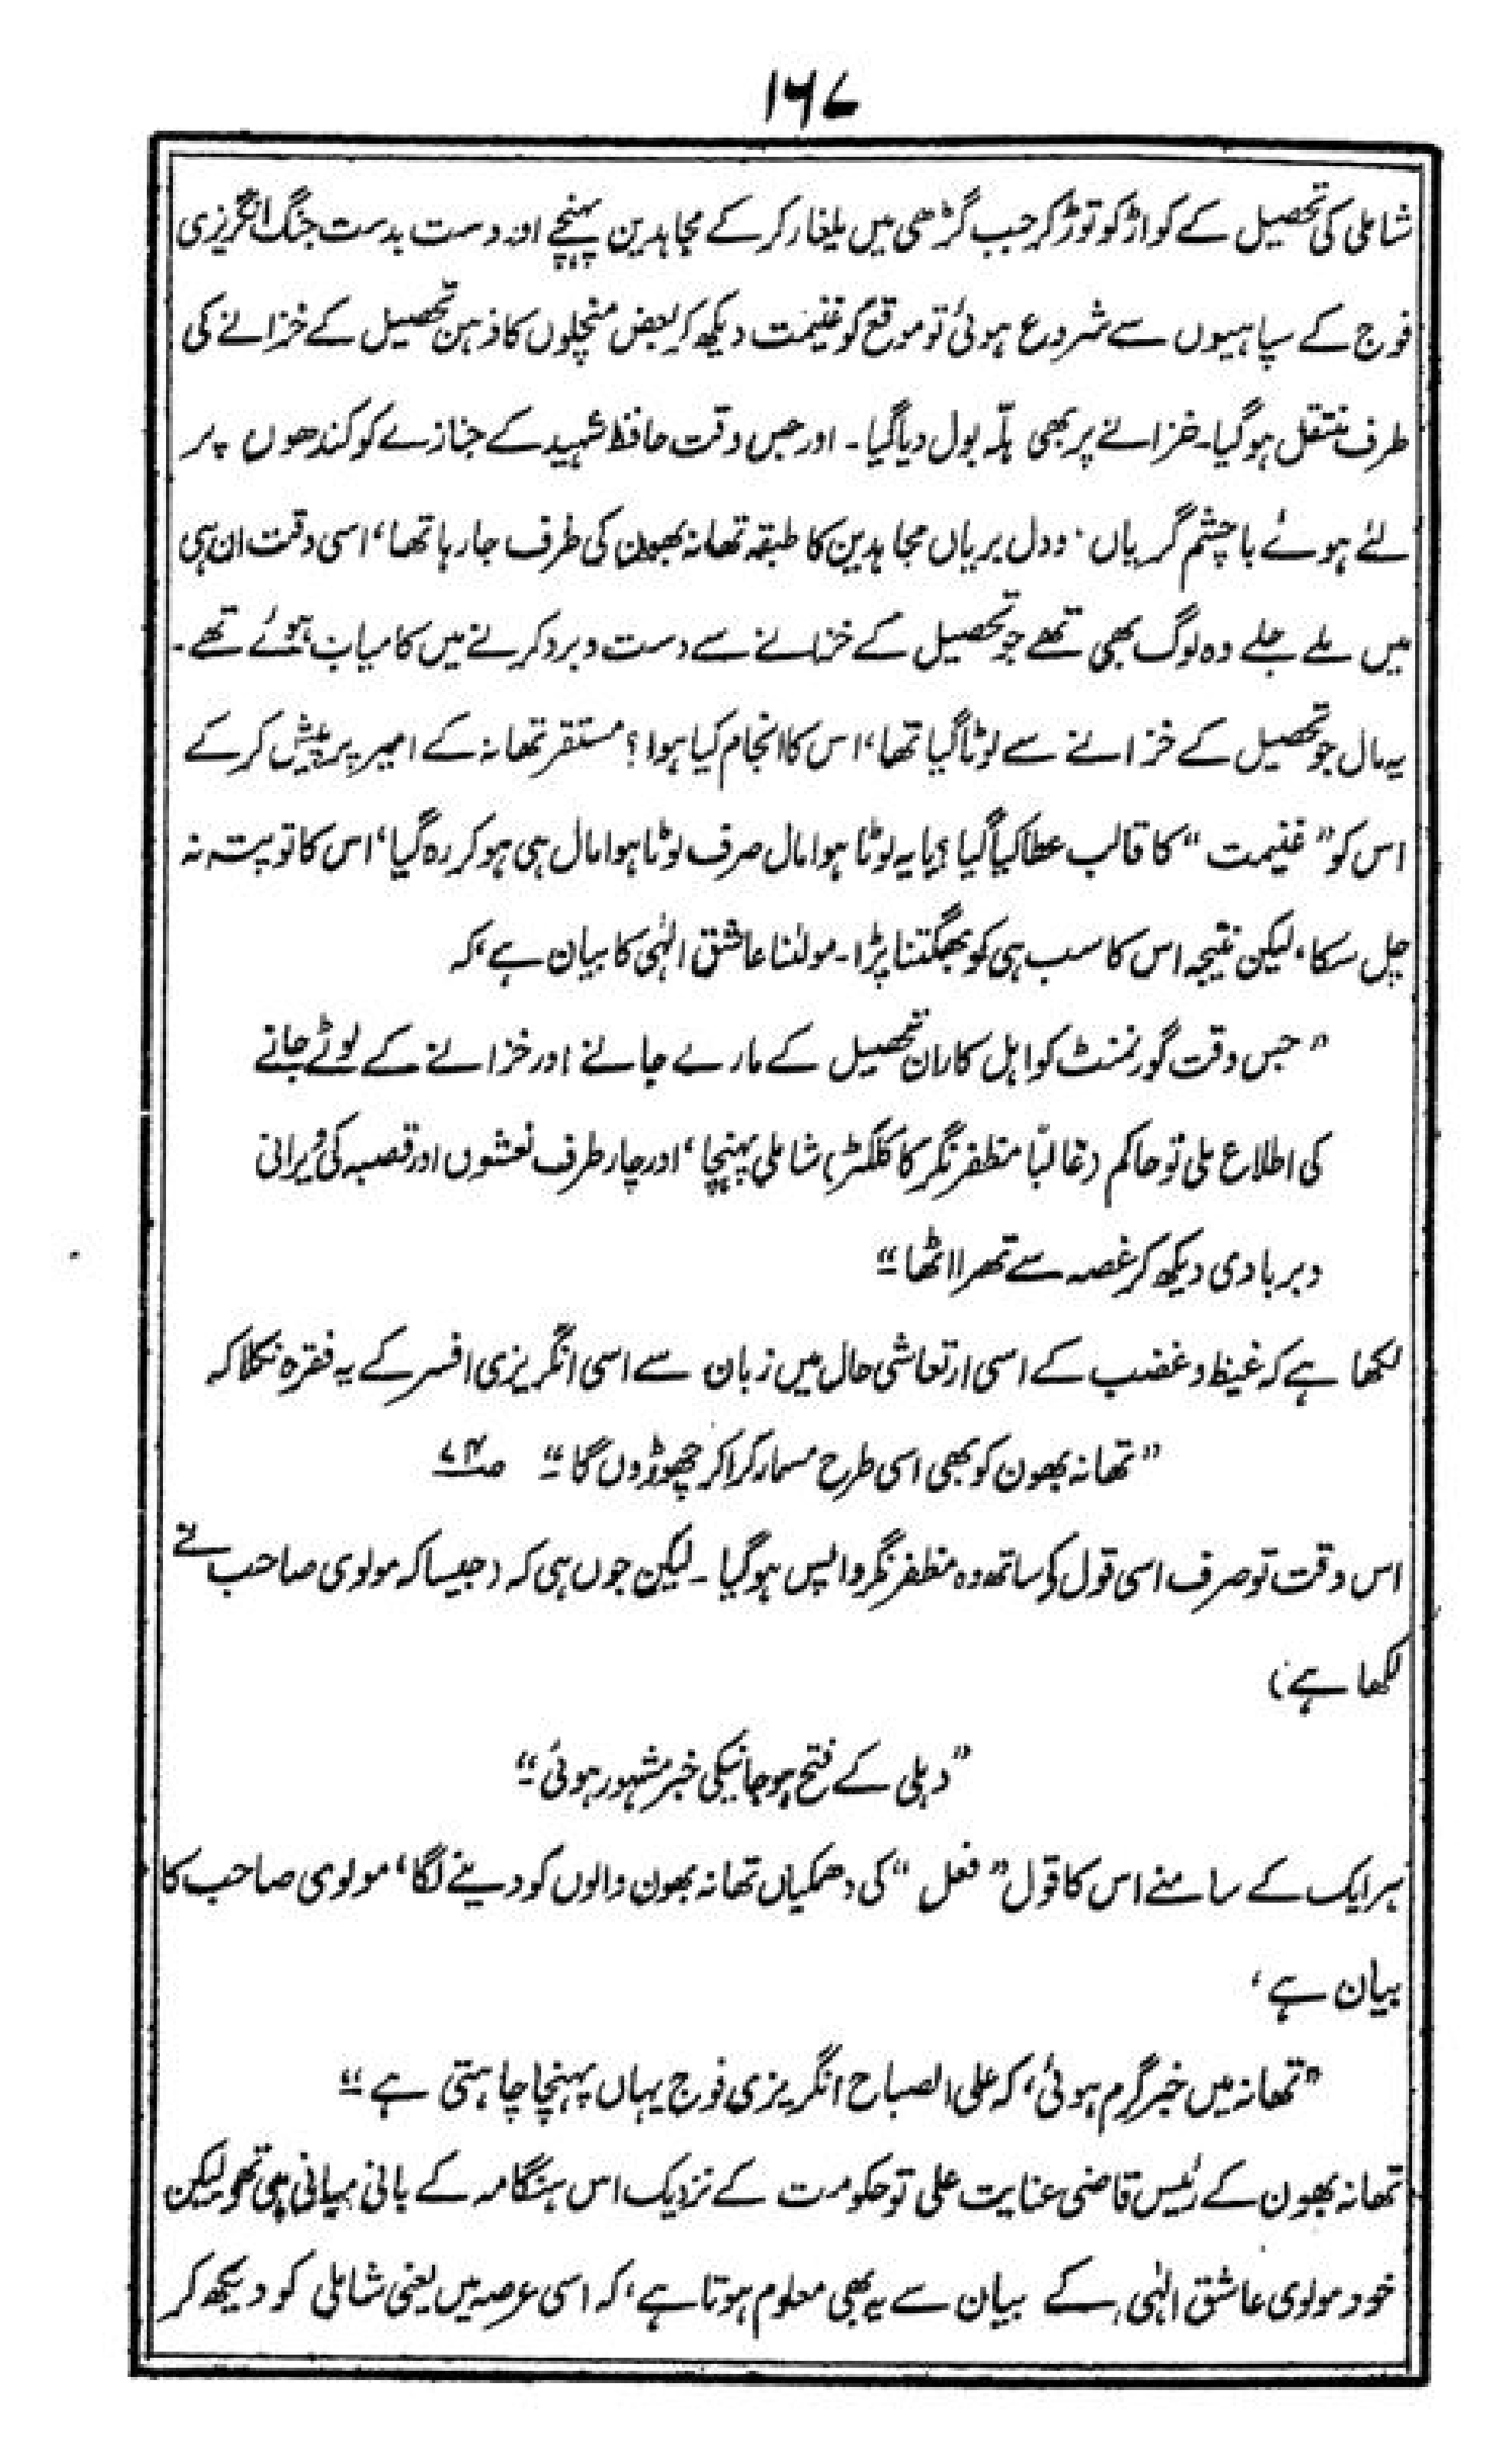 ۱۶۷
شاملی کی تحصیل کے کواڑ کو توڑ کر جب گڑھی میں یلغار کر کے مجاہدین پہنچے اور دست بدست جنگ انگریزی
فوج کے سپاہیوں سے شروع ہوئی تو موقع کو غنیمت دیکھ کر بعض منچلوں کا ذہن تحصیل کے خزانے کی
طرف منتقل ہو گیا۔ خزانے پر بھی ہلّہ بول دیا گیا۔ اور جس وقت حافظ شہید کے جنازے کو کندھوں پر
لئے ہوئے با چشم گریاں ودل بریاں مجاہدین کا طبقہ تھانہ بھون کی طرف جا رہا تھا، اسی وقت ان ہی
میں ملے جلے وہ لوگ بھی تھے جو تحصیل کے خزانے سے دست و برد کرنے میں کامیاب ہوئے تھے۔
یہ مال جو تحصیل کے خزانے سے لوٹا گیا تھا، اس کا انجام کیا ہوا؟ مستقر تھانہ کے امیر پر پیش کر کے
اس کو "غنیمت" کا قالب عطا کیا گیا یا یہ لوٹا ہوا مال صرف لوٹا ہوا مال ہی ہو کر رہ گیا، اس کا تو پتہ نہ
چل سکا، لیکن نتیجہ اس کا سب ہی کو بھگتنا پڑا۔ مولٰنا عاشق الٰہی کا بیان ہے، کہ
"جس وقت گورنمنٹ کو اہل کاران تحصیل کے مارے جانے اور خزانے کے لوٹے جانے
کی اطلاع ملی تو حاکم (غالباً مظفر نگر کا کلکٹر) شاملی پہنچا، اور چار طرف نعشوں اور قصبہ کی ویرانی
وبربادی دیکھ کر غصہ سے تھرا اٹھا"
لکھا ہے کہ غیظ و غضب کے اسی ارتعاشی حال میں زبان سے اسی انگریزی افسر کے یہ فقرہ نکلا کہ
"تھانہ بھون کو بھی اسی طرح مسمار کرا کر چھوڑوں گا" ص۷۴
اس وقت تو صرف اسی قول کی ساتھ وہ مظفر نگر واپس ہو گیا۔ لیکن جوں ہی کہ (جیسا کہ مولوی صاحب نے
لکھا ہے)
"دہلی کے فتح ہو جانیکی خبر مشہور ہوئی"
ہر ایک کے سامنے اس کا قول "فعل" کی دھمکیاں تھانہ بھون والوں کو دینے لگا، مولوی صاحب کا
بیان ہے،
"تھانہ میں خبر گرم ہوئی، کہ علی الصباح انگریزی فوج یہاں پہنچا چاہتی ہے"
تھانہ بھون کے رئیس قاضی عنایت علی تو حکومت کے نزدیک اس ہنگامہ کے بانی مبانی ہی تھے لیکن
خود مولوی عاشق الٰہی کے بیان سے یہ بھی معلوم ہوتا ہے، کہ اسی عرصہ میں یعنی شاملی کو دیکھ کر